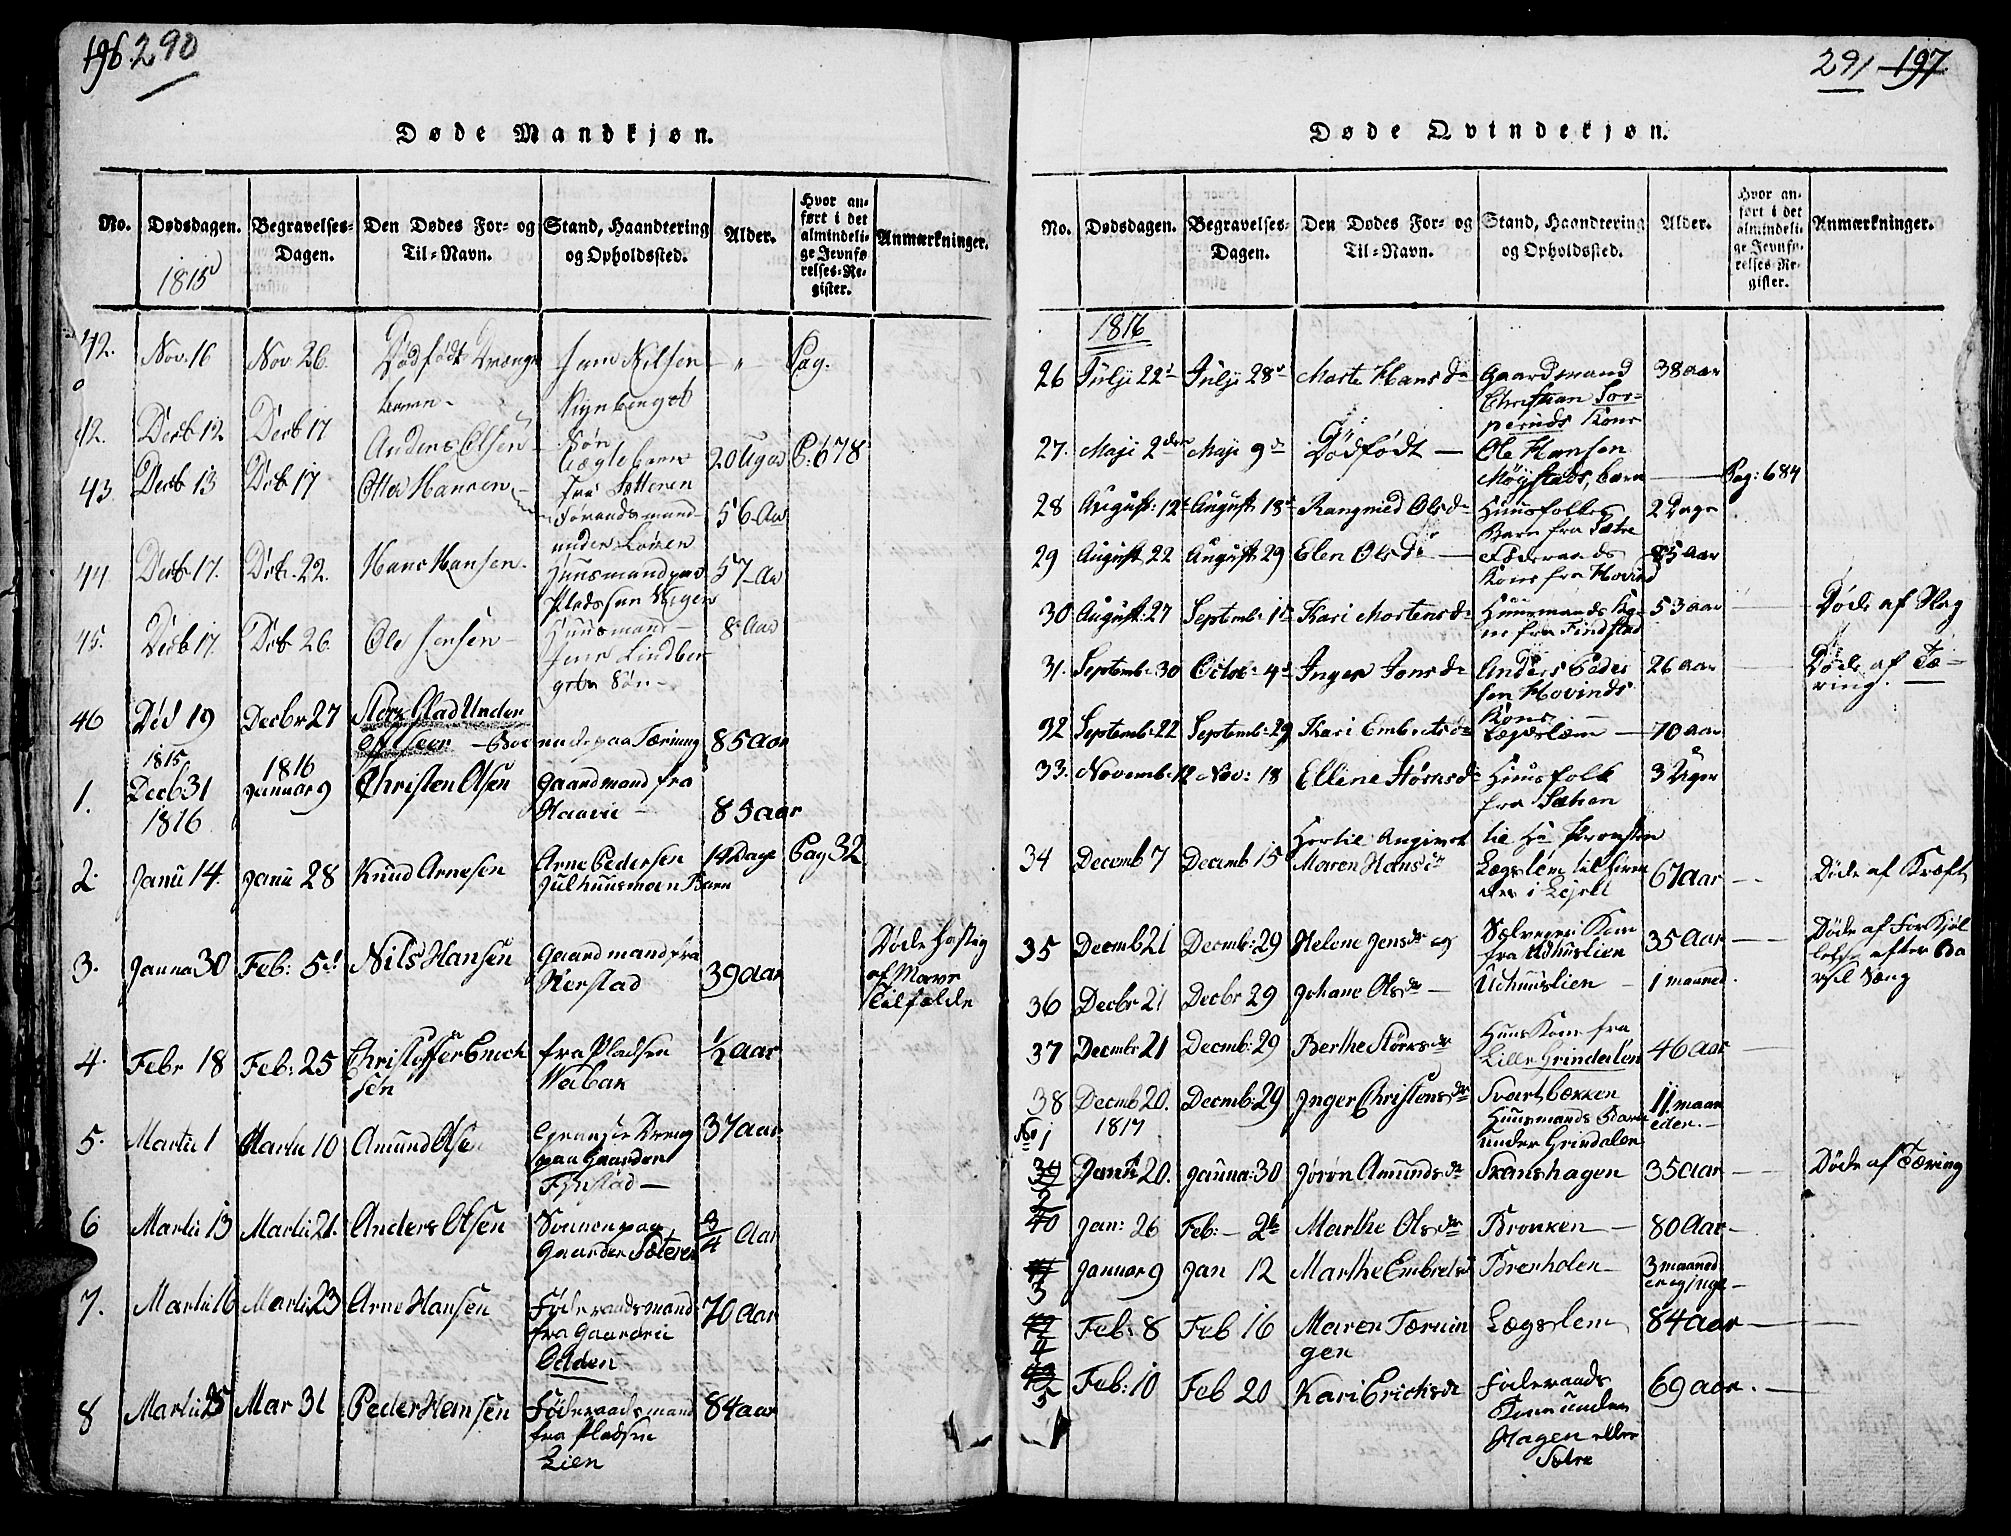 196. 290
Døde Mandkjøn.
No. Dødsdagen. Begravelses-Dagen. Den Dødes For- og Til-Navn. Stand, Haandtering og Opholdssted. Alder. Hvor anført i det almindelige Jevnførelses-Register. Anmærkninger.
1815
42. Nov. 16 Nov. 26 Dødfødt Drænge
barn - Jens Nilsen
- " - Pag.
42. Decb 12 Decb 17 Anders Olsen - Søn
20 Uger P: 678
43. Decb 13 Decb 17 Otter Hansen -
56 Aar
44 Decb 17. Decb. 22. Hans Hansen. Huusmand paa
Pladssen 57 Aar
45. Decb 17. Decb 26. Ole Jensen - Huusmand
Jens Lindber
gets Søn - 8 Aar
46 Dec 19 Decbr 27 85 Aar
1815 1816
1. Decb 31 Januar 9 Christen Olsen Gaardmand fra
Haavie - 83 aar
1816
2. Janu 14. Janu 28 Knud Arnesen Arne Pedersen
Julhuusmoen Barn 14 Dage Pag 32
3. Janua 30 Feb: 5d Nils Hansen Gaardmand fra
Kierstad 39 Aar Døde Hastig
af Mavе
Tilfælde
4. Febr 18 Feb: 25 Christoffer Erich
sen fra Pladsen
Webak ½ Aar
5. Martii 1 Martii 10 Amund Olsen
paa Gaarden 37 aar
6 Martii 13 Martii 21. Anders Olsen Sønnen paa
Gaarden Sæteren 3/4 Aar
7. Martii 16 Martii 23 Arne Hansen Föderaadsmand
fra Gaarden
Odden 70 Aar
8 Martii 25 Mar 31 Peder Hansen Föderaadsmand
fra Pladsen
Lien 84 aar
291 197
Døde Qvindekjøn.
No. Dødsdagen. Begravelses-Dagen. Den Dødes For- og Til-Navn. Stand, Haandtering og Opholdssted. Alder. Hvor anført i det almindelige Jevnførelses-Register. Anmærkninger.
1816
26 Julji 22d Julji 28d Marte Hansdr Gaardmand
Christian Tor-
peruds Kone 38 aar
27. Maji 2den Maji 9de Dødfødt - Ole Hansen
Møystads, barn - Pag: 684
28 August: 12t August 18d Rangnied Olsdr Huusfolkes
Barn fra Sætre 2 Dage
29 August 22 August 29 Elen Olsdr - Föderaads
Kone fra Hovind 85 aar
30 August: 27 Septemb: 1d Kari Mortensdr Huusmands Ko-
ne fra Findstad 53 aar Døde af Slag
31. Septemb: 30 Octob: 4d Inger Jonsdr Anders Peder
sen Hovinds
Kone 26 aar Døde af Tæ-
ring.
32 Septemb: 22 Septemb: 29 Kari Embretsdr Lægslæm - 70 aar
33. Novemb: 12 Nov: 18 Elline Størnsdr Huusfolk
fra Sætren 3 Uger
34 Decemb 7 Decemb 15 Maren Hansdr Lægslem til
67 Aar Døde af Kræft
35 Decmb 21 Decmb: 29 Helene Jensdr og Sælveyer Kone
fra Udhuuslien 35 Aar Døde af Forkjøl
lelse efter Ba
rsel Seng
36 Decbr 21 Decbr 29 Johane Olsdr - Udhuuslien - 1 maaned.
37 Decmbr 21 Decmb: 29 Berthe Størksdr Huus Kone fra
Lille Grindalen 46 Aar
38 Decmb 20. Decmb: 29 Inger Christensdr Svartbækken
Huusmands Barn
under Grindalen 11. maan
eder. -
1817
No 1
39 Janu 20. Janua: 30 Jøron Amundsdr Skanshagen 35 Aar Døde af Tæring
2
40 Jan: 26 Feb: - 2d Marthe Olsdr Bronken - 80 Aar
41
3 Januar 9 Jan 12 Marthe Embretsd Brenholen - 3 maaned
42
4 Feb: 8 Feb 16 Maren Tærnin
gen Lægslem 84 aar
43
5 Feb: 10 Feb 20 Kari Erichsdr Föderaads
Kone under
Hagen eller
Sætre 69 aar.